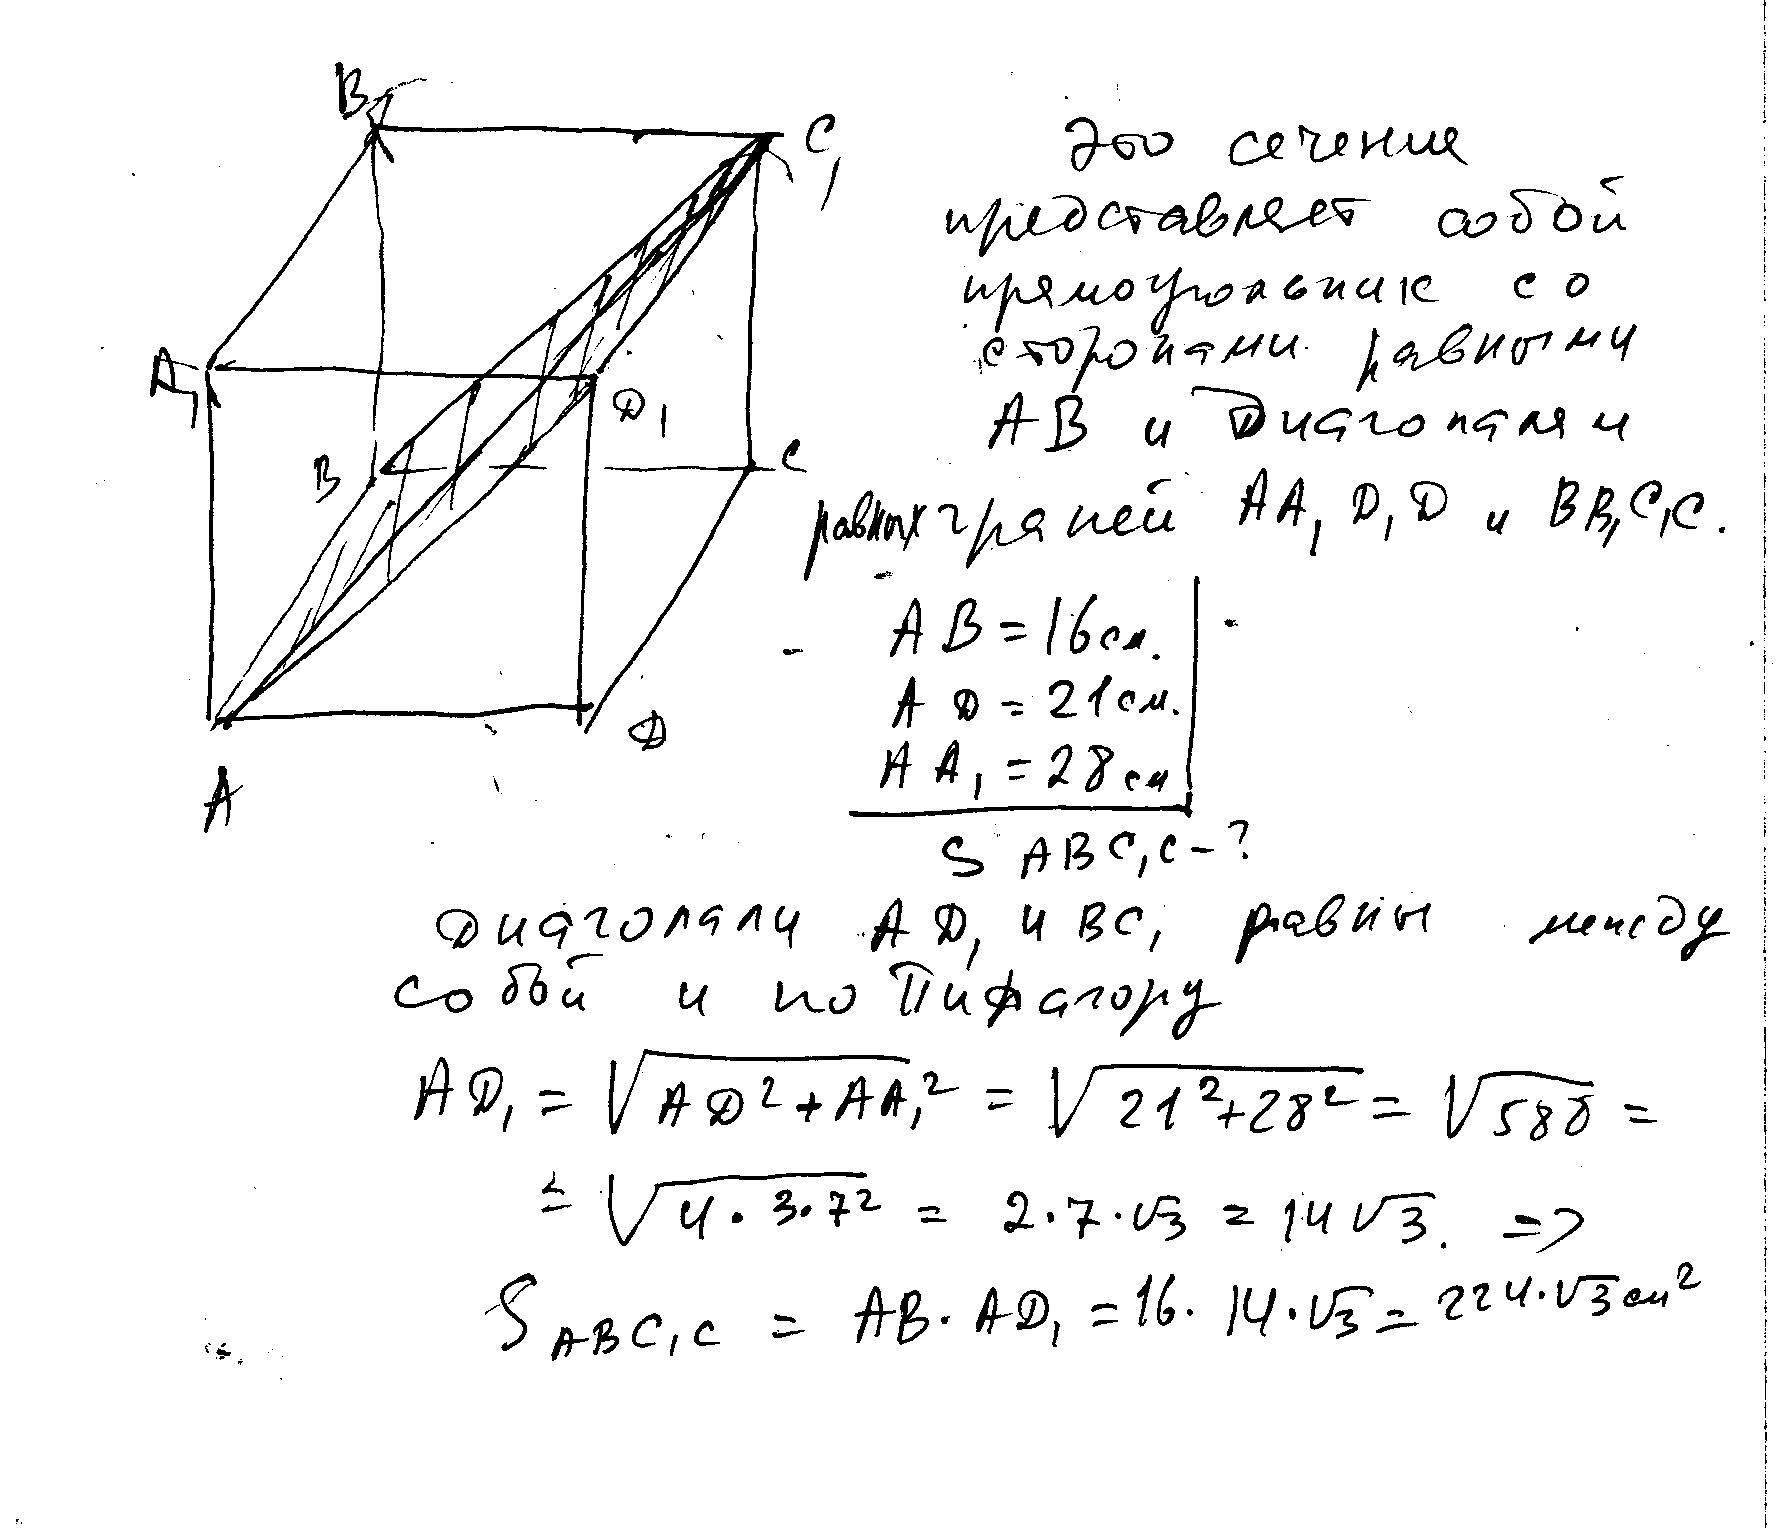 B₁
C₁
Это сечение
представляет собой
прямоугольник со
A₁
D₁
сторонами равными
AB и Диагоналям
B
C
равных граней AA₁D₁D и BB₁C₁C.
AB = 16 см.
AD = 21 см.
D
AA₁ = 28 см
A
S ABC₁C - ?
Диагонали AD₁ и BC₁ равны между
собой и по Пифагору
AD₁ = √(AD² + AA₁²) = √(21² + 28²) = √588 =
= √(4 · 3 · 7²) = 2 · 7 · √3 = 14√3. =>
S ABC₁C = AB · AD₁ = 16 · 14 · √3 = 224 · √3 см²